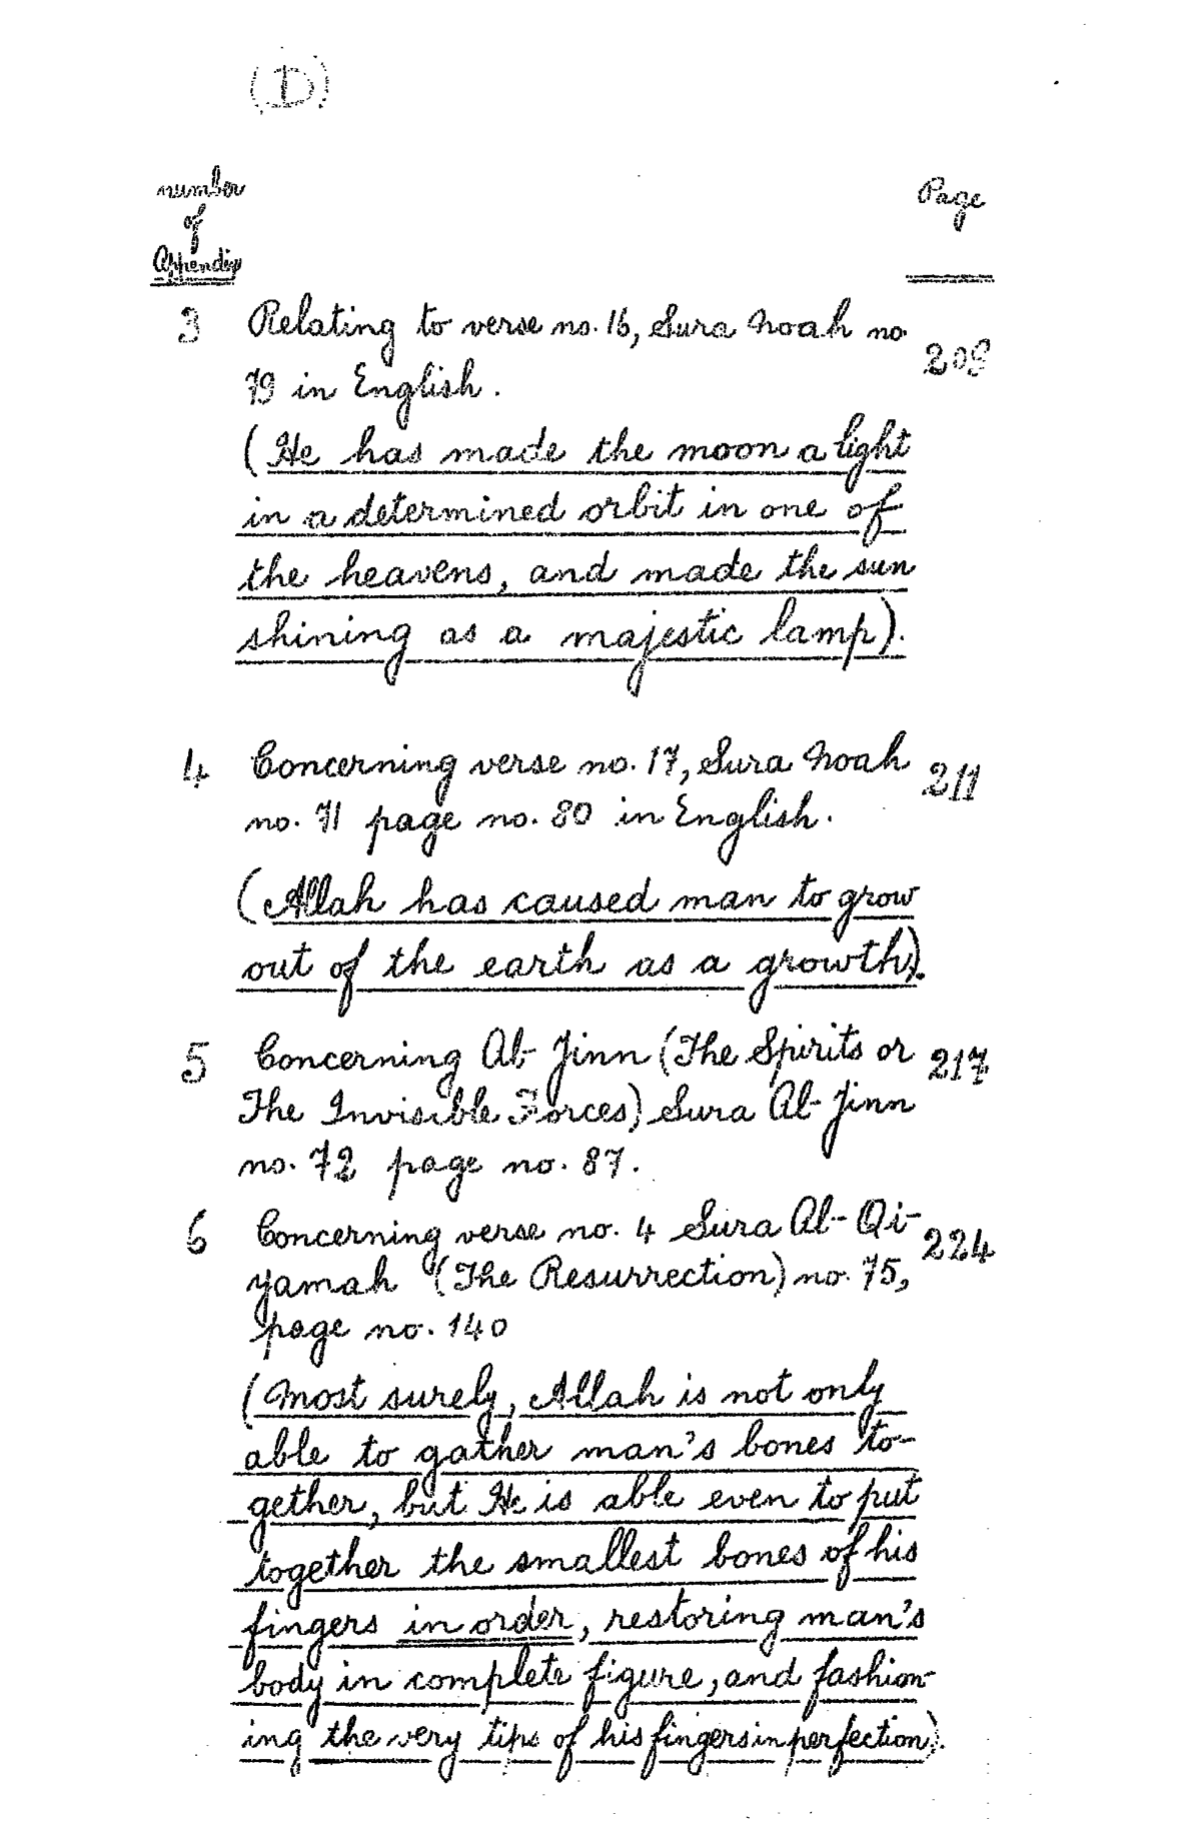 (D)
number
of
Appendix
Page
3 Relating to verse no. 16, Sura Noah no
208
79 in English.
(He has made the moon a light
in a determined orbit in one of
the heavens, and made the sun
shining as a majestic lamp).
4 Concerning verse no. 17, Sura Noah 211
no. 71 page no. 80 in English.
(Allah has caused man to grow
out of the earth as a growth).
5 Concerning Al-Jinn (The Spirits or 217
The Invisible Forces) Sura Al-Jinn
no. 72 page no. 87.
6 Concerning verse no. 4 Sura Al-Qi- 224
yamah (The Resurrection) no. 75,
page no. 140
(Most surely, Allah is not only
able to gather man's bones to-
gether, but He is able even to put
together the smallest bones of his
fingers in order, restoring man's
body in complete figure, and fashion-
ing the very tips of his fingers in perfection).